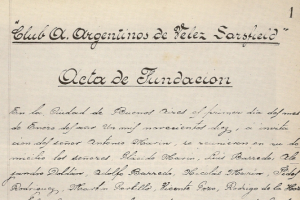 1
"Club A. Argentinos de Vélez Sarsfield"
Acta de Fundacion
En la Ciudad de Buenos Aires el primer dia del mes
de Enero del año un mil novecientos diez, a invita
cion del señor Antonio Marin, se reunieron en su do
micilio los señores Plinio Marin, Luis Barredo,
Adolfo Barredo, Nicolas Marin,
Rodriguez, Martin Portillo, Vicente Rodrigo de la